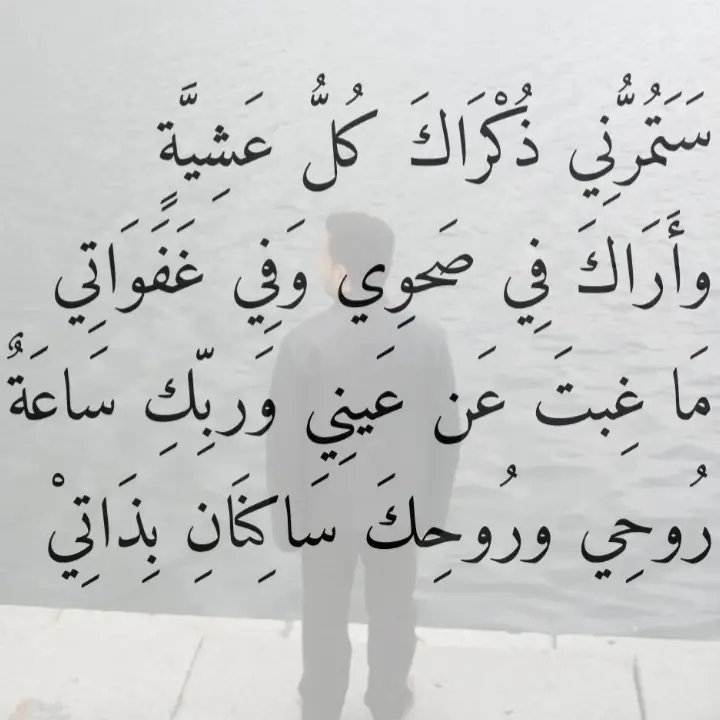 سَتَمُرُّنِي ذُكْرَاكَ كُلُّ عَشِيَّةٍ
وأَرَاكَ فِي صَحوِي وَفِي غَفَوَاتِي
مَا غِبتَ عَن عَينِي وَربِّكِ سَاعَةٌ
رُوحِي ورُوحِكَ سَاكِنَانِ بِذَاتِيْ